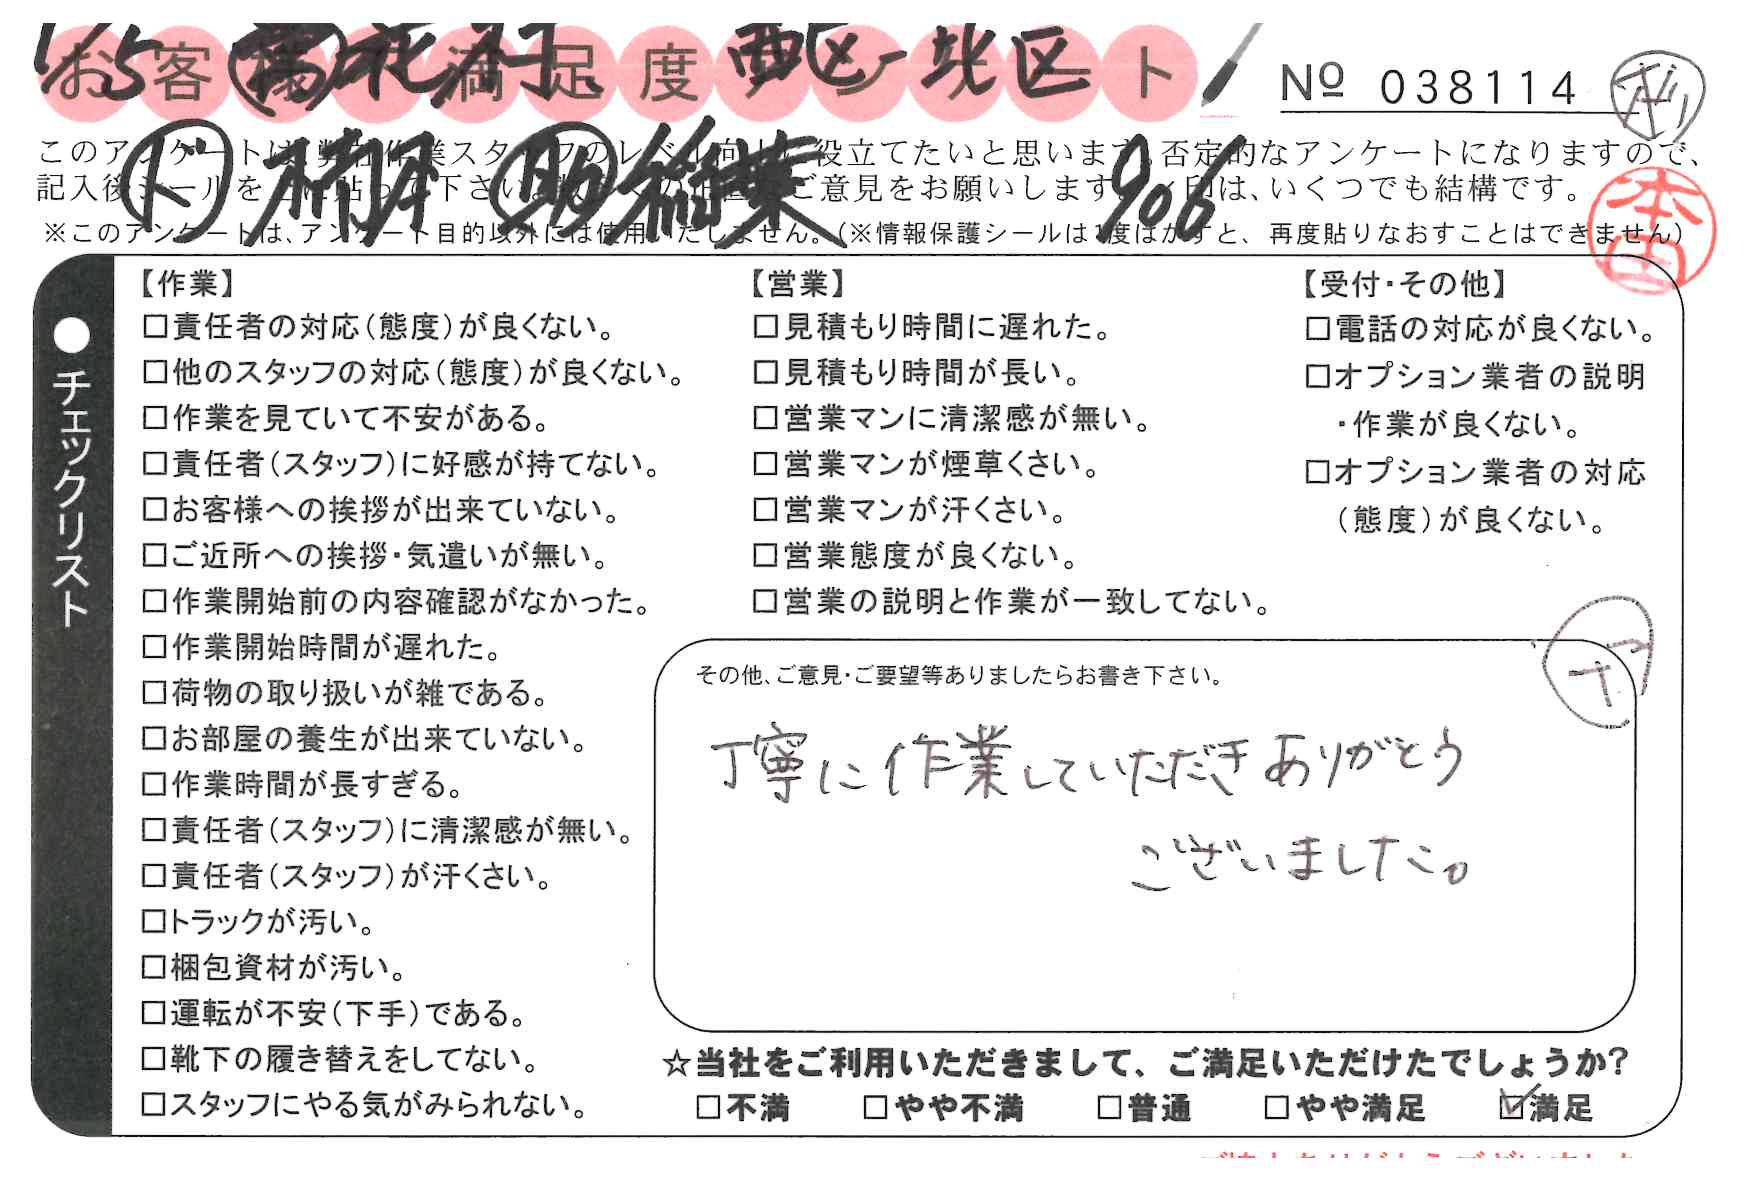 お客様満足度アンケート
1/15 西区-北区
Nº 038114
ド 楠本 助 稲葉 906
このアンケートは、弊社作業スタッフのレベル向上に役立てたいと思います。否定的なアンケートになりますので、
記入後シールを上に貼って下さい。数多くの正直なご意見をお願いします。✓印は、いくつでも結構です。
※このアンケートは、アンケート目的以外には使用いたしません。(※情報保護シールは1度はがすと、再度貼りなおすことはできません)
本田
●チェックリスト
【作業】
□責任者の対応(態度)が良くない。
□他のスタッフの対応(態度)が良くない。
□作業を見ていて不安がある。
□責任者(スタッフ)に好感が持てない。
□お客様への挨拶が出来ていない。
□ご近所への挨拶・気遣いが無い。
□作業開始前の内容確認がなかった。
□作業開始時間が遅れた。
□荷物の取り扱いが雑である。
□お部屋の養生が出来ていない。
□作業時間が長すぎる。
□責任者(スタッフ)に清潔感が無い。
□責任者(スタッフ)が汗くさい。
□トラックが汚い。
□梱包資材が汚い。
□運転が不安(下手)である。
□靴下の履き替えをしてない。
□スタッフにやる気がみられない。
【営業】
□見積もり時間に遅れた。
□見積もり時間が長い。
□営業マンに清潔感が無い。
□営業マンが煙草くさい。
□営業マンが汗くさい。
□営業態度が良くない。
□営業の説明と作業が一致してない。
【受付・その他】
□電話の対応が良くない。
□オプション業者の説明
・作業が良くない。
□オプション業者の対応
(態度)が良くない。
その他、ご意見・ご要望等ありましたらお書き下さい。
丁寧に作業していただきありがとう
ございました。
☆当社をご利用いただきまして、ご満足いただけたでしょうか?
□不満 □やや不満 □普通 □やや満足 ☑満足